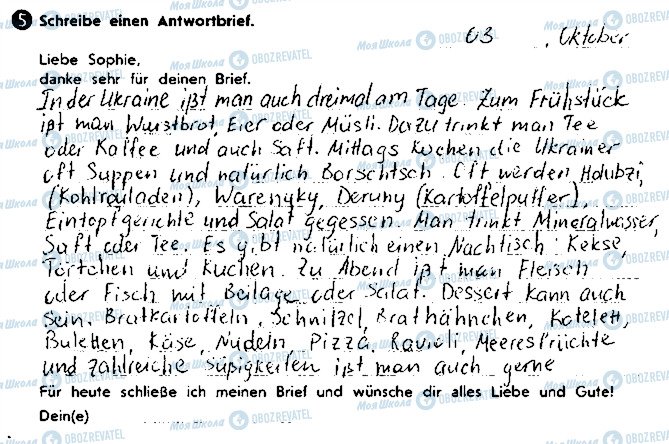 5 Schreibe einen Antwortbrief.
03 , Oktober
Liebe Sophie,
danke sehr für deinen Brief.
In der Ukraine ißt man auch dreimal am Tage. Zum Frühstück
ißt man Wurstbrot, Eier oder Müsli. Dazu trinkt man Tee
oder Kaffee und auch Saft. Mittags kochen die Ukrainer
oft Suppen und natürlich Borschtsch. Oft werden Holubzi,
(Kohlrouladen), Warenyky, Deruny (Kartoffelpuffer),
Eintopfgerichte und Salat gegessen. Man trinkt Mineralwasser,
Saft oder Tee. Es gibt natürlich einen Nachtisch: Kekse,
Törtchen und Kuchen. Zu Abend ißt man Fleisch
oder Fisch mit Beilage oder Salat. Dessert kann auch
sein. Bratkartoffeln, Schnitzel, Brathähnchen, Kotelett,
Buletten, Käse, Nudeln, Pizza, Ravioli, Meeresfrüchte
und zahlreiche Süßigkeiten ißt man auch gerne
Für heute schließe ich meinen Brief und wünsche dir alles Liebe und Gute!
Dein(e)